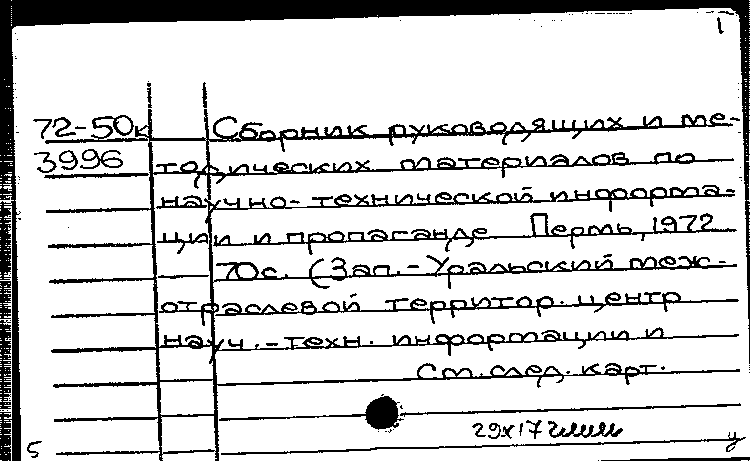 1
72-50к Сборник руководящих и ме-
3996 тодических материалов по
научно-технической информа-
ции и пропаганде Пермь, 1972
70с. (Зап.-Уральский меж-
отраслевой территор. центр
науч.-техн. информации и
См. след. карт.
29х17
5 у